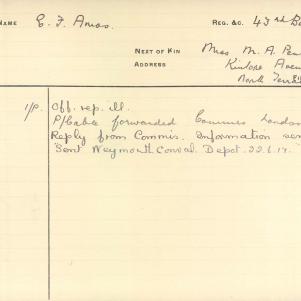 NAME E. F. Amos. REG. &C. 43rd Ba
NEXT OF KIN Miss M. A.
ADDRESS Kintore Aven
North Terr
1/p. Off. rep. ill.
P/Cable forwarded Commis London
Reply from Commis. Information
Sent Weymouth Conval. Depot.